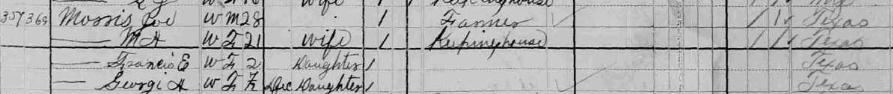 Wife Keeping house
357 369 Morris Joe W M 28 1 Farmer 1 1 Texas
— M A W F 21 Wife 1 Keeping house 1 1 Texas
— Francis E W F 2 Daughter 1 Texas
— Georgi A W F Dec Daughter 1 Texas